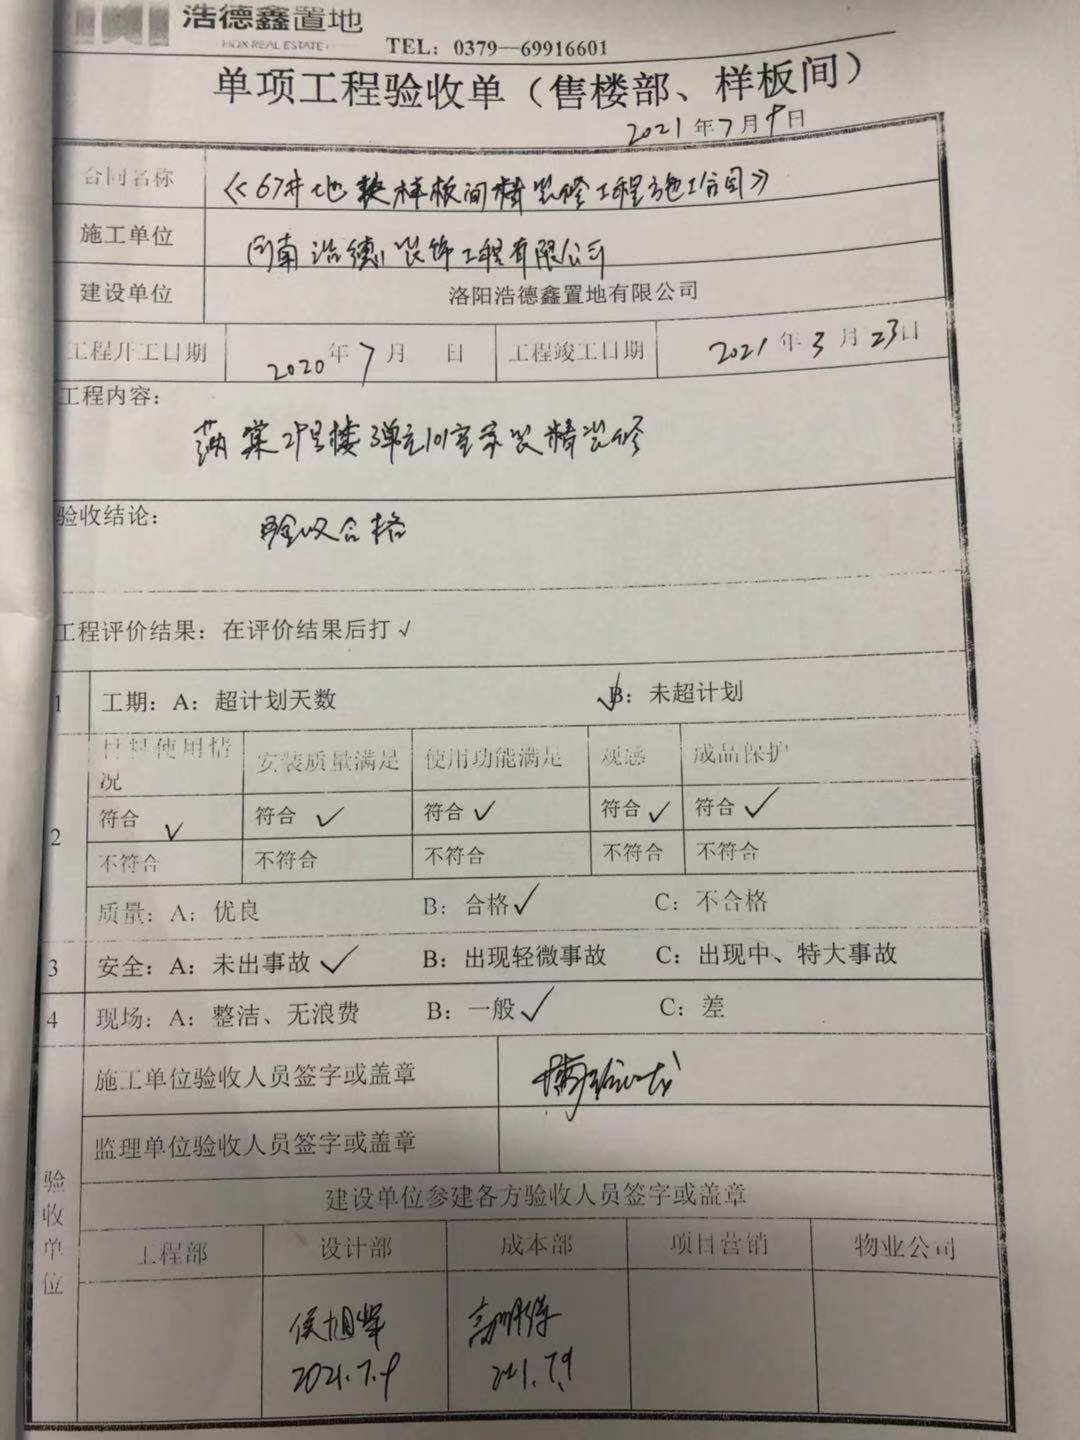 浩德鑫置地
HDX REAL ESTATE
TEL：0379—69916601
单项工程验收单（售楼部、样板间）
2021年7月9日
合同名称 《67#地块样板间精装修工程施工合同》
施工单位 河南浩德装饰工程有限公司
建设单位 洛阳浩德鑫置地有限公司
工程开工日期 2020年7月 日 工程竣工日期 2021年3月23日
工程内容：
棠2#楼3单元101室家装精装修
验收结论：
验收合格
工程评价结果：在评价结果后打√
1 工期：A：超计划天数 √B：未超计划
材料使用情况 安装质量满足 使用功能满足 观感 成品保护
2 符合√ 符合√ 符合√ 符合√ 符合√
不符合 不符合 不符合 不符合 不符合
质量：A：优良 B：合格√ C：不合格
3 安全：A：未出事故√ B：出现轻微事故 C：出现中、特大事故
4 现场：A：整洁、无浪费 B：一般√ C：差
验收单位
施工单位验收人员签字或盖章
监理单位验收人员签字或盖章
建设单位参建各方验收人员签字或盖章
工程部 设计部 成本部 项目营销 物业公司
侯旭辉
2021.7.9 2021.7.9